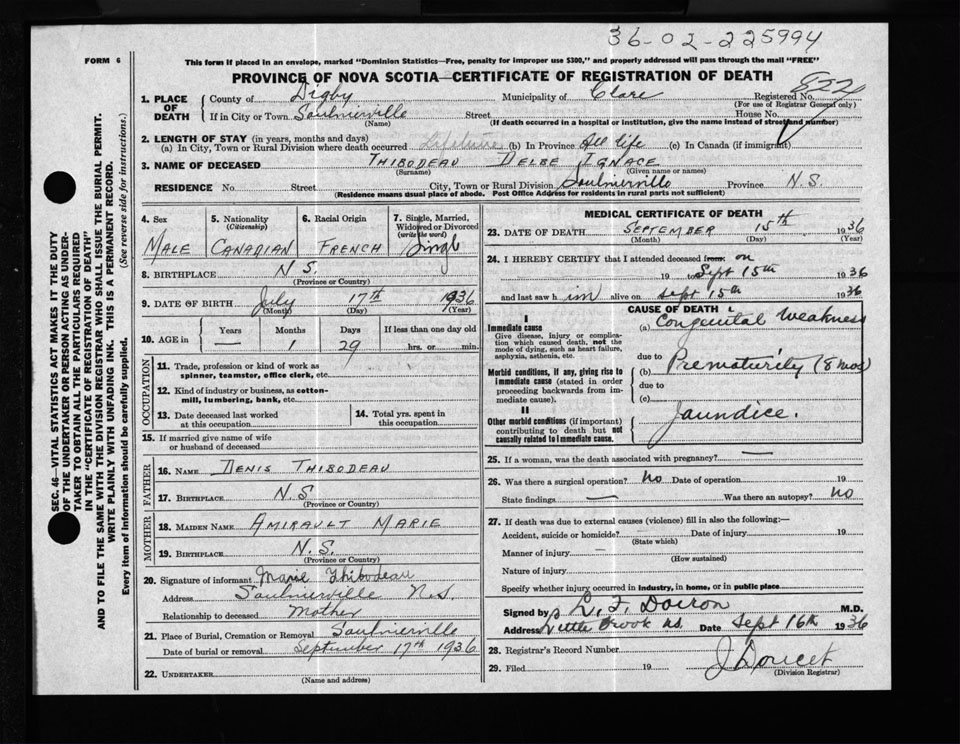 36-02-225994
FORM 6
This form if placed in an envelope, marked "Dominion Statistics—Free, penalty for improper use $300," and properly addressed will pass through the mail "FREE"
PROVINCE OF NOVA SCOTIA—CERTIFICATE OF REGISTRATION OF DEATH
1. PLACE OF DEATH
County of Digby Municipality of Clare Registered No. 822
(For use of Registrar General only)
If in City or Town Saulnierville Street House No.
(Name) (If death occurred in a hospital or institution, give the name instead of street and number)
2. LENGTH OF STAY (in years, months and days)
(a) In City, Town or Rural Division where death occurred Lifetime (b) In Province All life (c) In Canada (if immigrant)
3. NAME OF DECEASED THIBODEAU DELBE IGNACE
(Surname) (Given name or names)
RESIDENCE No. Street City, Town or Rural Division Saulnierville Province N.S.
(Residence means usual place of abode. Post Office Address for residents in rural parts not sufficient)
4. Sex MALE
5. Nationality (Citizenship) CANADIAN
6. Racial Origin FRENCH
7. Single, Married, Widowed or Divorced (write the word) Single
8. BIRTHPLACE N S.
(Province or Country)
9. DATE OF BIRTH July 17th 1936
(Month) (Day) (Year)
10. AGE in Years Months Days If less than one day old
— 1 29 hrs. or min.
OCCUPATION
11. Trade, profession or kind of work as spinner, teamster, office clerk, etc.
12. Kind of industry or business, as cotton-mill, lumbering, bank, etc.
13. Date deceased last worked at this occupation
14. Total yrs. spent in this occupation
15. If married give name of wife or husband of deceased
FATHER
16. NAME DENIS THIBODEAU
17. BIRTHPLACE N.S
(Province or Country)
MOTHER
18. MAIDEN NAME AMIRAULT MARIE
19. BIRTHPLACE N.S.
(Province or Country)
20. Signature of informant Marie Thibodeau
Address Saulnierville N.S.
Relationship to deceased Mother
21. Place of Burial, Cremation or Removal Saulnierville
Date of burial or removal September 17th 1936
22. UNDERTAKER
(Name and address)
MEDICAL CERTIFICATE OF DEATH
23. DATE OF DEATH SEPTEMBER 15th 1936
(Month) (Day) (Year)
24. I HEREBY CERTIFY that I attended deceased from: on
19 to Sept 15th 1936
and last saw him alive on Sept 15th 1936
CAUSE OF DEATH
I
Immediate cause
Give disease, injury or complication which caused death, not the mode of dying, such as heart failure, asphyxia, asthenia, etc.
(a) Congenital Weakness
due to
Morbid conditions, if any, giving rise to immediate cause (stated in order proceeding backwards from immediate cause).
(b) Prematurity (8 mos)
due to
(c)
II
Other morbid conditions (if important) contributing to death but not causally related to immediate cause.
Jaundice.
25. If a woman, was the death associated with pregnancy? —
26. Was there a surgical operation? No Date of operation 19
State findings — Was there an autopsy? no
27. If death was due to external causes (violence) fill in also the following:—
Accident, suicide or homicide? Date of injury 19
(State which)
Manner of injury —
(How sustained)
Nature of injury
Specify whether injury occurred in industry, in home, or in public place
Signed by L. F. Doiron M.D.
Address Little Brook N.S. Date Sept 16th 1936
28. Registrar's Record Number
29. Filed 19 J Doucet
(Division Registrar)
SEC. 46—VITAL STATISTICS ACT MAKES IT THE DUTY
OF THE UNDERTAKER OR PERSON ACTING AS UNDERTAKER
TO OBTAIN ALL THE PARTICULARS REQUIRED
IN THE "CERTIFICATE OF REGISTRATION OF DEATH"
AND TO FILE THE SAME WITH THE DIVISION REGISTRAR WHO SHALL ISSUE THE BURIAL PERMIT.
WRITE PLAINLY WITH UNFADING INK. THIS IS A PERMANENT RECORD.
Every item of Information should be carefully supplied. (See reverse side for instructions.)